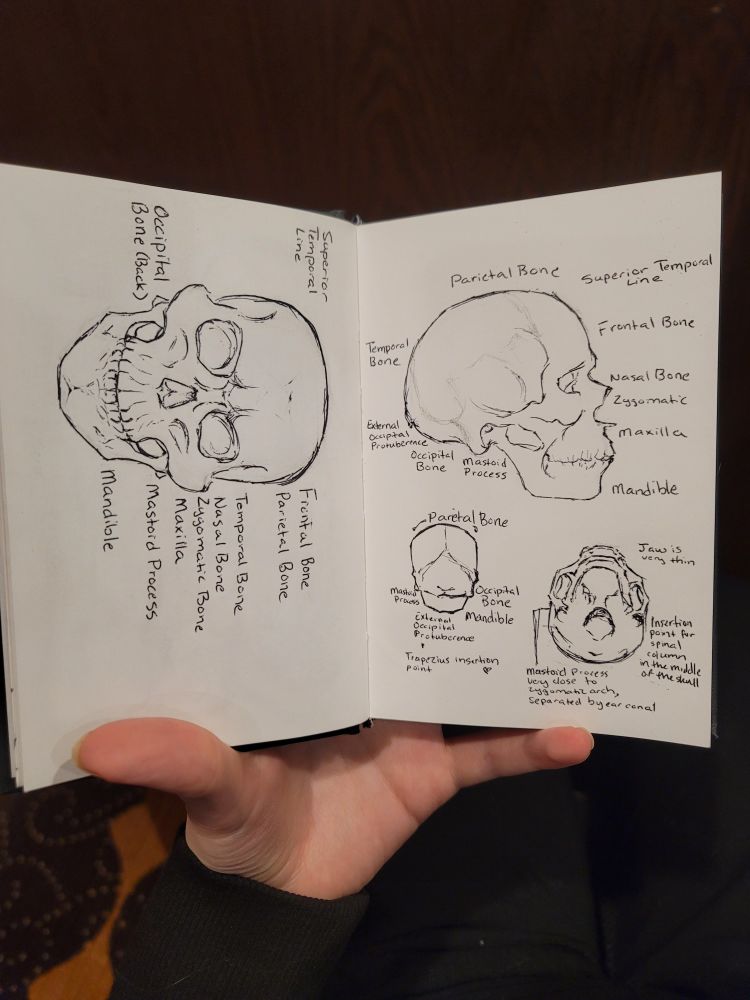 Superior
Temporal
Line
Occipital
Bone (Back)
Frontal Bone
Parietal Bone
Temporal Bone
Nasal Bone
Zygomatic Bone
Maxilla
Mastoid Process
Mandible
Parietal Bone
Superior Temporal
Line
Frontal Bone
Temporal
Bone
Nasal Bone
Zygomatic
Maxilla
External
Occipital
Protuberence
Occipital
Bone
Mastoid
Process
Mandible
Parietal Bone
Mastoid
Process
Occipital
Bone
Mandible
External
Occipital
Protuberence
Trapezius insertion
point
Jaw is
very thin
Insertion
point for
spinal
column
in the middle
of the skull
Mastoid Process
very close to
zygomatic arch,
separated by ear canal